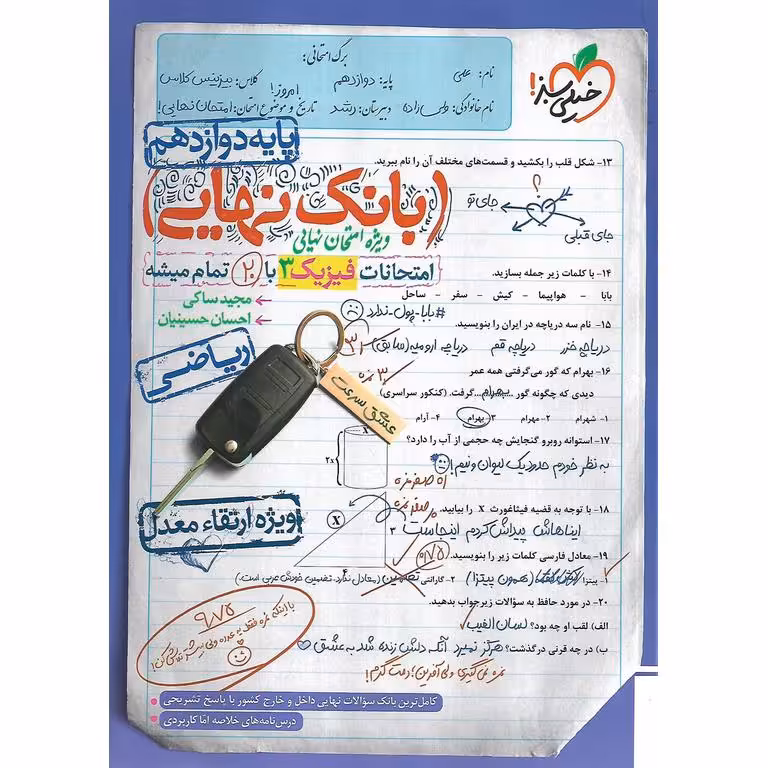 برگ امتحانی:
نام: علی
پایه: دوازدهم
کلاس: بیزینس کلاس
نام خانوادگی: ولی‌زاده
دبیرستان: رشد
تاریخ و موضوع امتحان: امروز! امتحان نهایی!
خیلی سبز!
پایه دوازدهم
(بانک نهایی)
ویژه امتحان نهایی
امتحانات فیزیک ۳ با ۲۰ تمام میشه
مجید ساکی
احسان حسینیان
ریاضی
عشق سرعت
ویژه ارتقاء معدل
۱۳- شکل قلب را بکشید و قسمت‌های مختلف آن را نام ببرید.
؟
جای تو
جای قبلی
۱۴- با کلمات زیر جمله بسازید.
بابا - هواپیما - کیش - سفر - ساحل
#بابا-پول-ندارد
۱۵- نام سه دریاچه در ایران را بنویسید.
دریاچه خزر دریاچه قم دریاچه ارومیه (سابق)
۱۶- بهرام که گور می‌گرفتی همه عمر
دیدی که چگونه گور ...بهرام... گرفت. (کنکور سراسری)
۱- شهرام ۲- مهرام ۳- بهرام ۴- آرام
۱۷- استوانه روبرو گنجایش چه حجمی از آب را دارد؟
x
2x
به نظر خودم حدود یک لیوان و نیم!
۱۸- با توجه به قضیه فیثاغورث X را بیابید.
صفر نمره
X
۳
۴
ایناهاش پیداش کردم اینجاست
۱۹- معادل فارسی کلمات زیر را بنویسید.
۰/۷۵
۱- پیتزا (همون پیتزا) ۲- گارانتی تضمین (معادل ندارد. تضمین خودش عربی است.)
۲۰- در مورد حافظ به سؤالات زیر جواب بدهید.
الف) لقب او چه بود؟ لسان الغیب
ب) در چه قرنی درگذشت؟ هرگز نمیرد آنکه دلش زنده شد به عشق
نمره نمی‌گیری ولی آفرین؛ دمت گرم!
۹/۷۵
کامل‌ترین بانک سوالات نهایی داخل و خارج کشور با پاسخ تشریحی
درس‌نامه‌های خلاصه امّا کاربردی